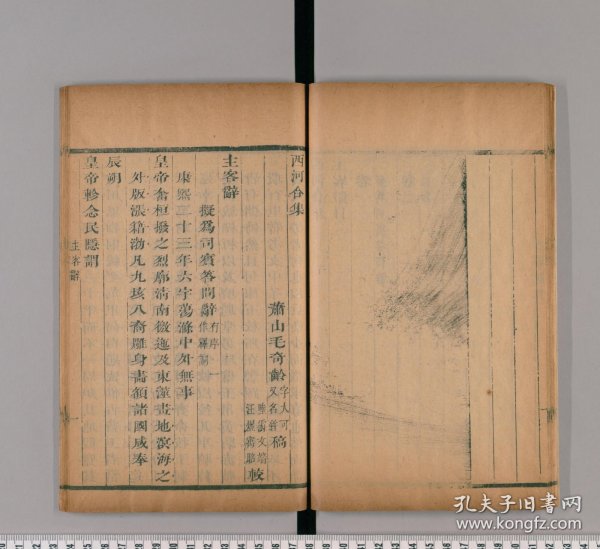 西河合集
蕭山毛奇齡字大可又名甡稿
較
主客辭
擬爲司賓答問辭有序
康熙二十三年六宇蕩滌中外無事
皇帝奮桓撥之烈廓清南徼迤及東藩畫地瀕海之
外版漲籍渤凡九垓八裔雕身畵額諸國咸奉
辰朔
皇帝軫念民隱謂
主客辭
孔夫子旧书网
www.kongfz.com